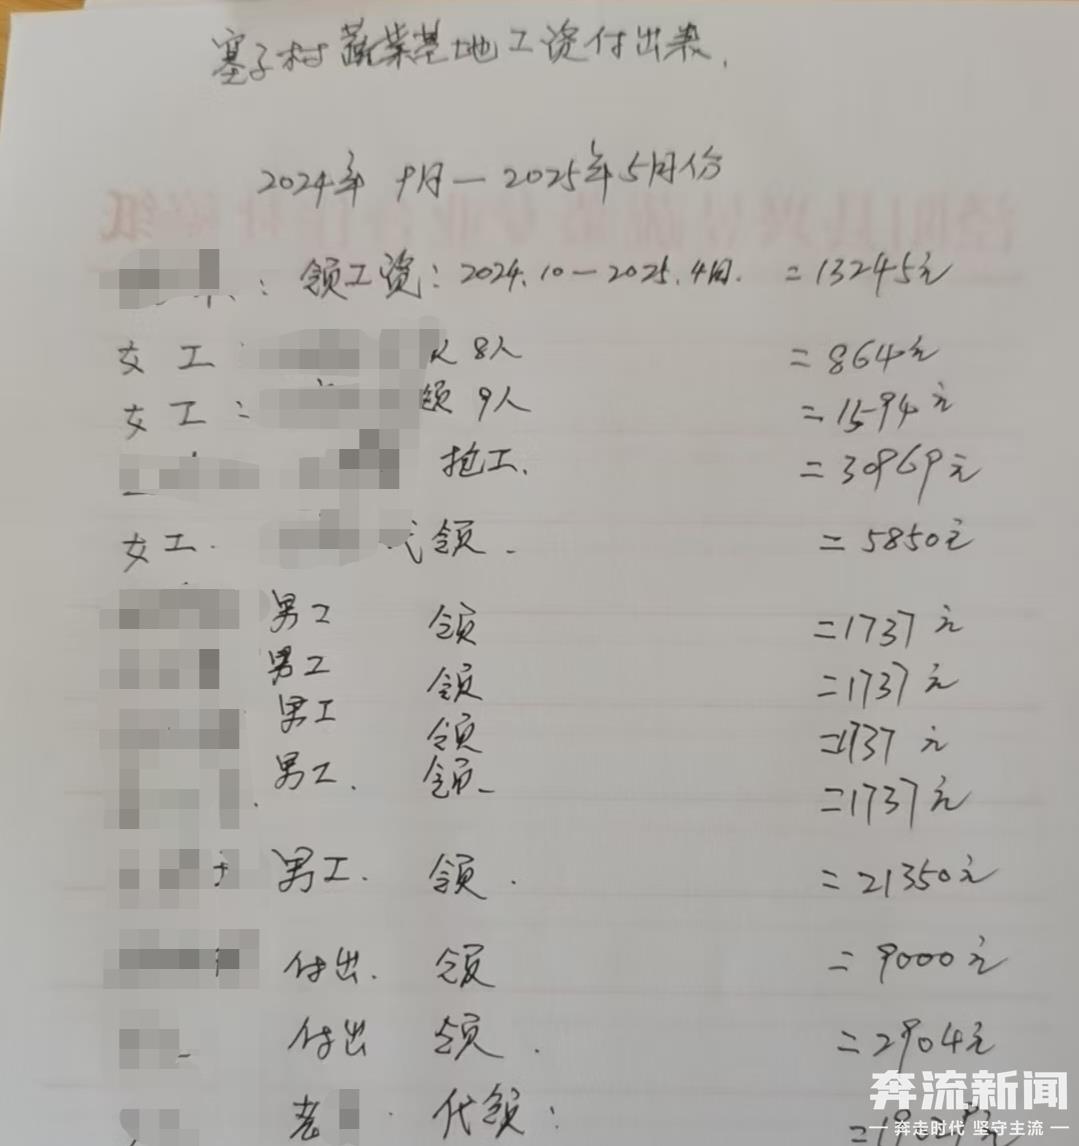 塞子村蔬菜基地工资付出表.
2024年 9月—2025年5月份
: 领工资: 2024.10—2025.4月. =13245元
女工: 8人 =864元
女工: 领 9人 =1594元
抢工. =30969元
女工. 代领. =5850元
男工 领 =1737元
男工 领 =1737元
男工 领 =1737元
男工. 领 =1737元
男工. 领. =21350元
付出. 领 =9000元
付出 领. =2904元
老 代领:
奔流新闻
奔走时代 坚守主流